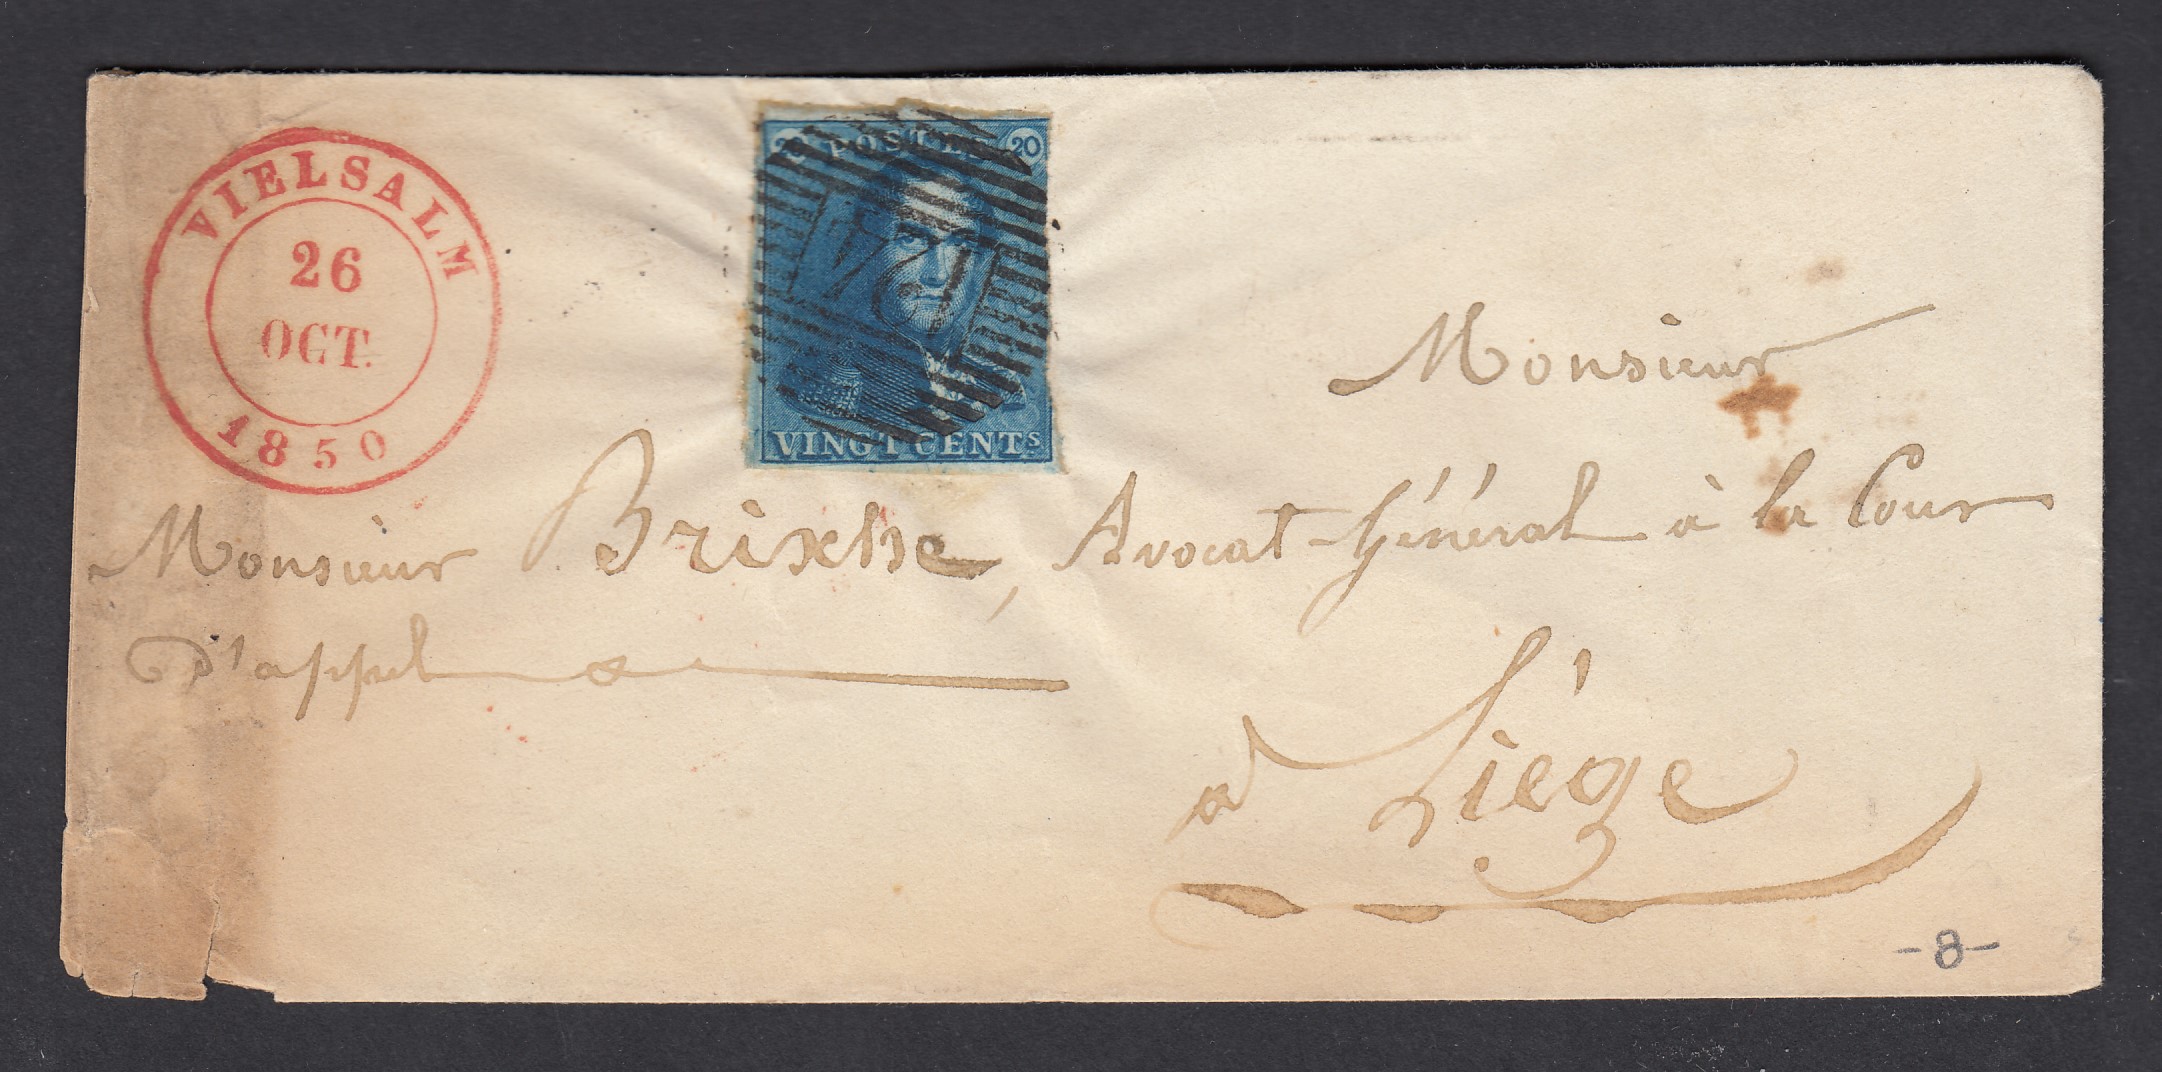 VIELSALM
26
OCT.
1850
20 POSTES 20
VINGT CENTS
Monsieur
Monsieur Brixhe, Avocat-Général à la Cour
d'appel
à Liége
-8-